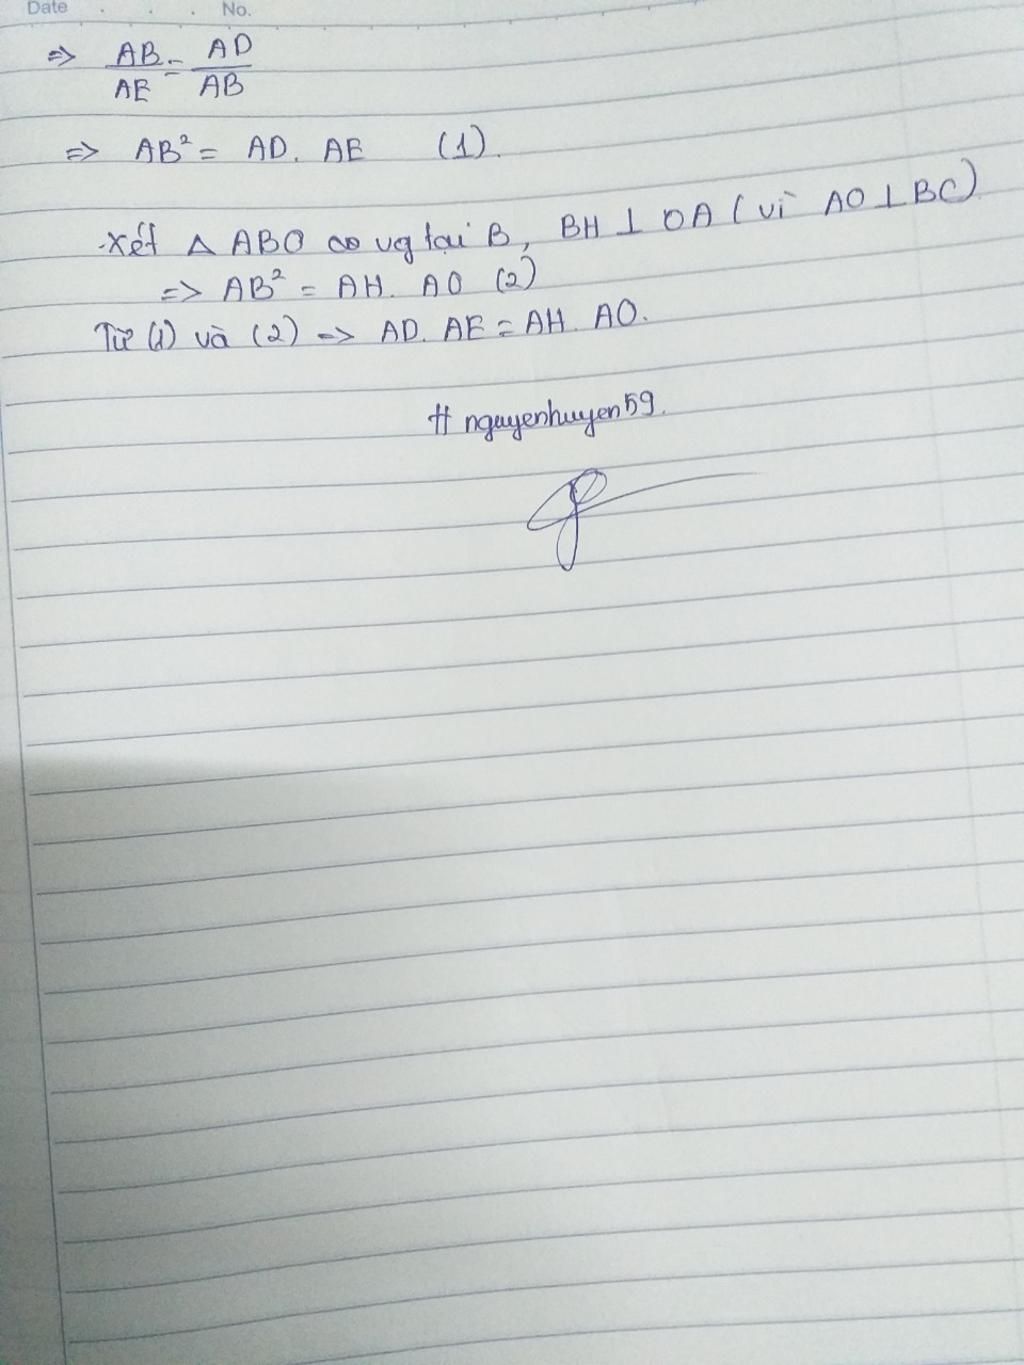 Date . . . No.
=> AB/AE = AD/AB
=> AB² = AD. AE (1).
-Xét △ ABO có vg tại B, BH ⊥ OA ( vì AO ⊥ BC)
=> AB² = AH. AO (2)
Từ (1) và (2) => AD. AE = AH. AO.
# nguyenhuyen59.